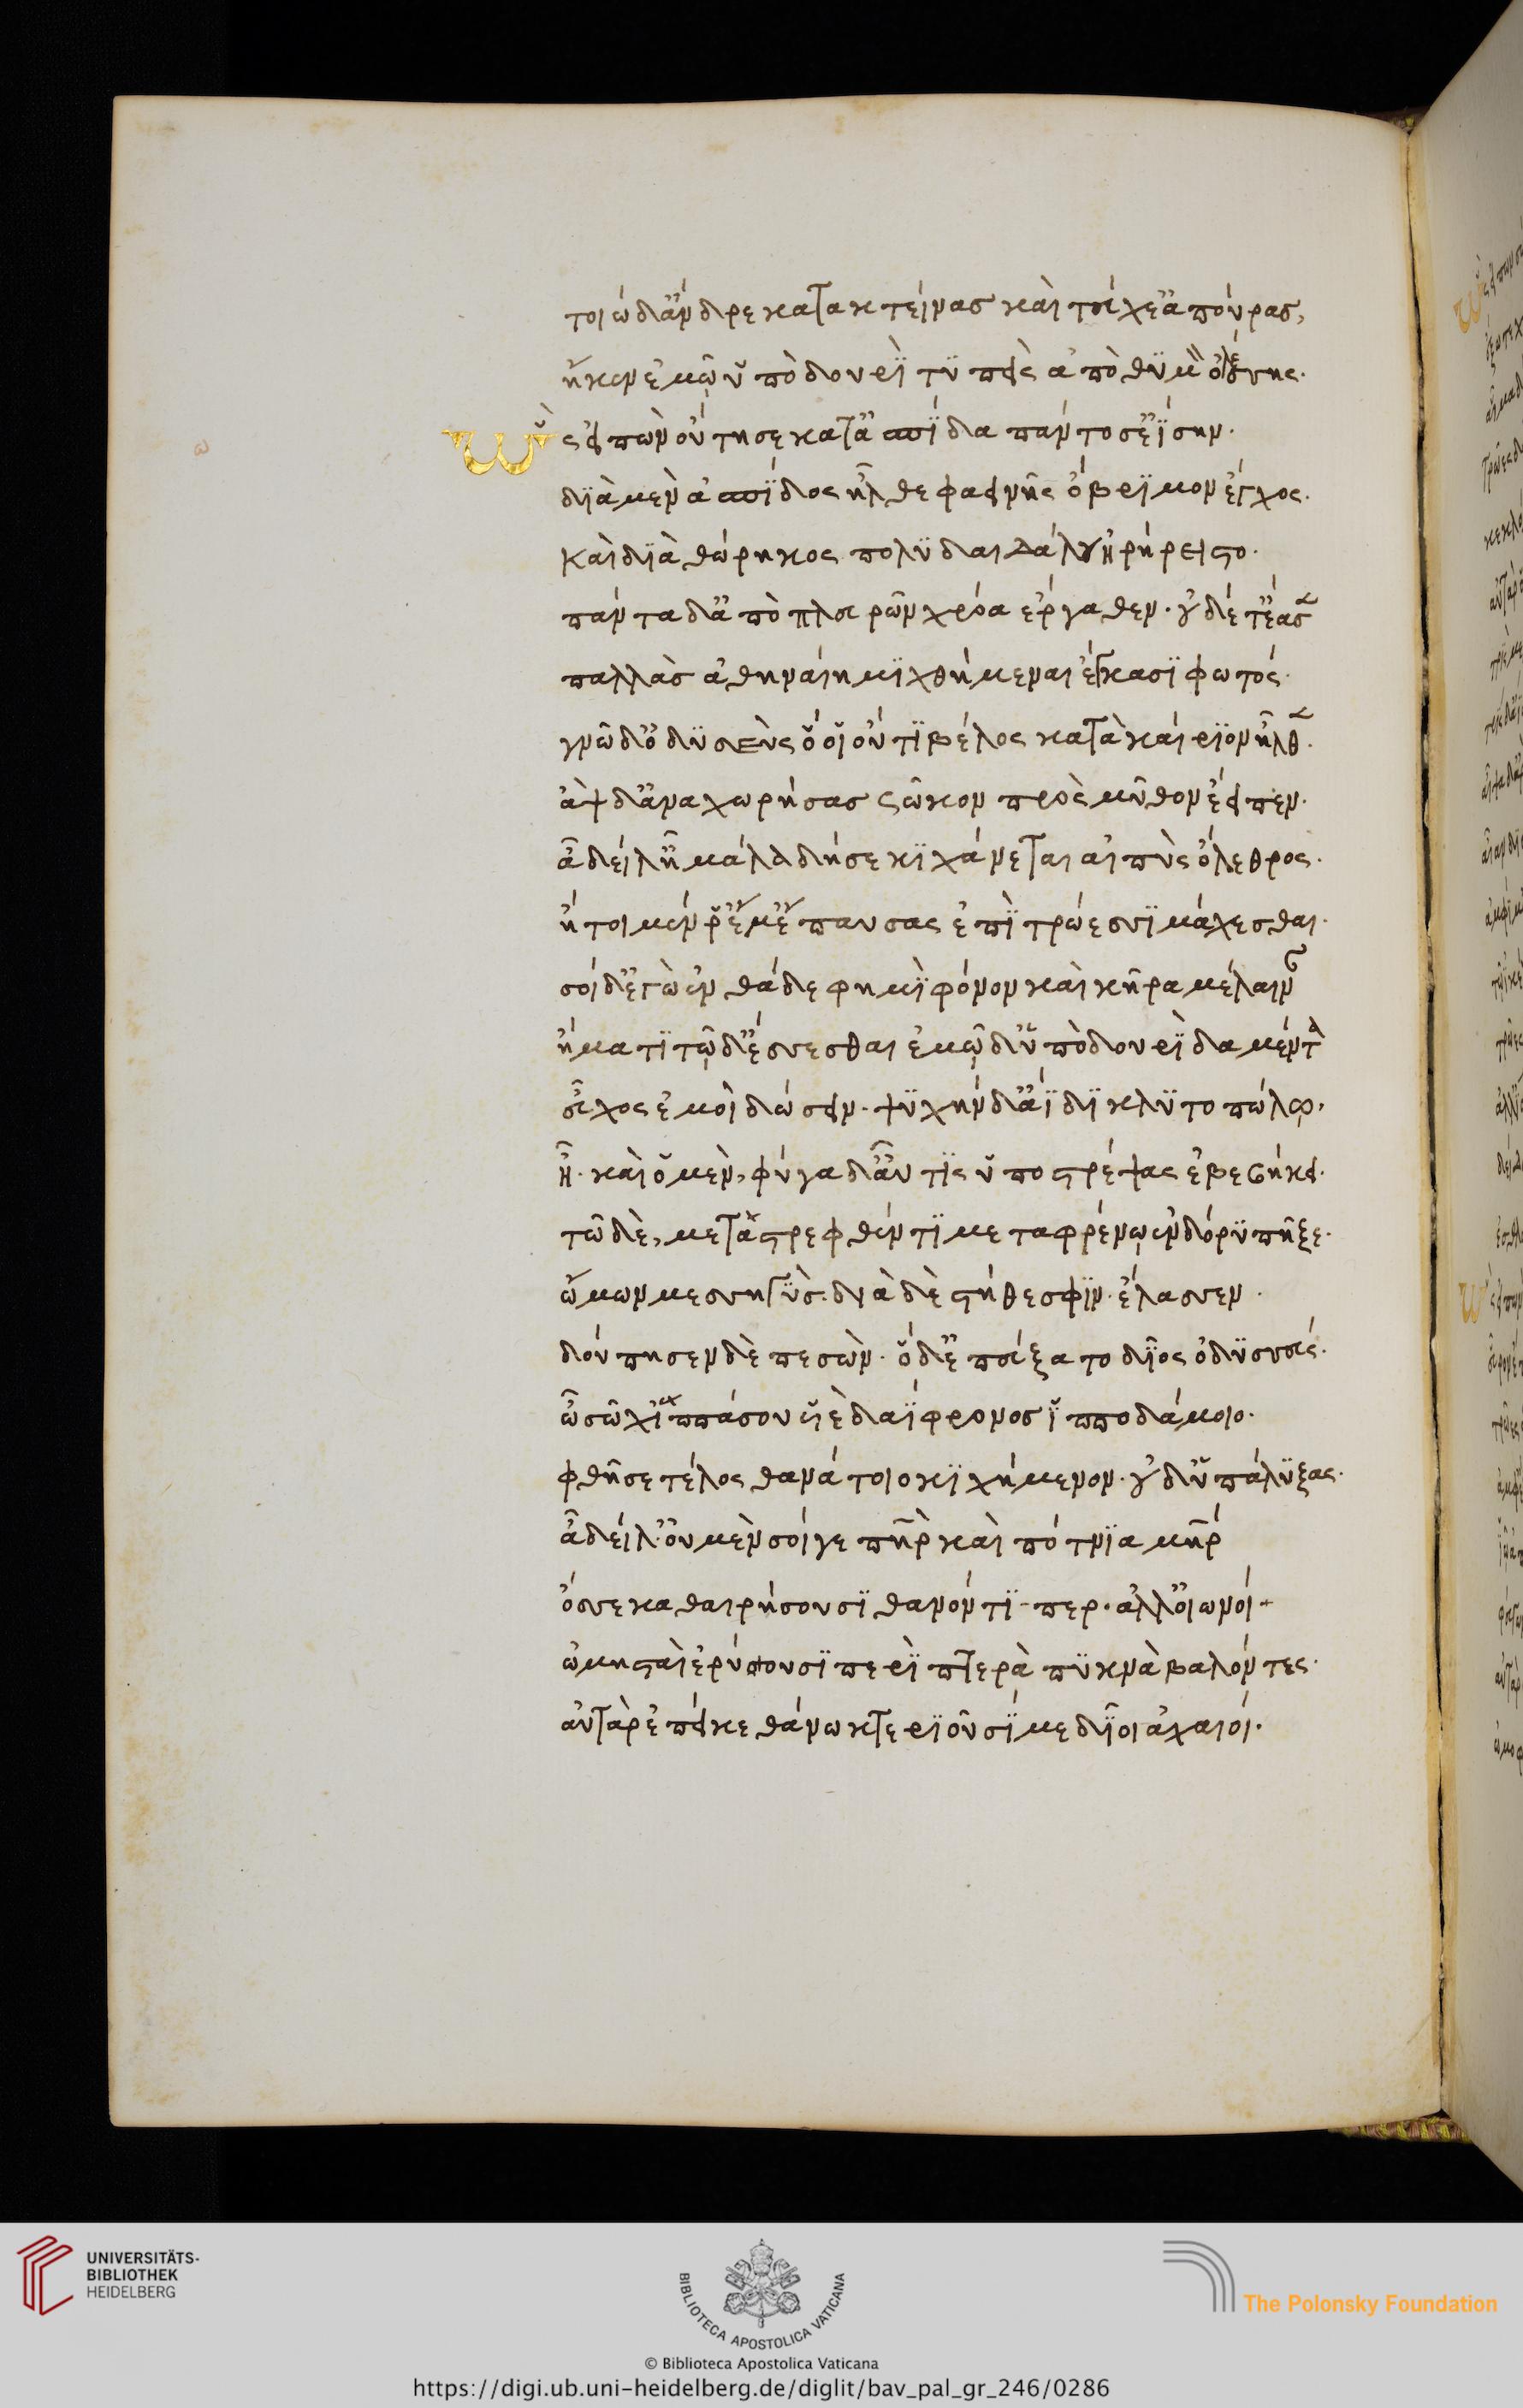 τοιώδ' ἄνδρε κατακτείνας καὶ τεύχε' ἀπούρας,
ἤ κεν ἐμῷ ὑπὸ δουρὶ τυπεὶς ἀπὸ θυμὸν ὀλέσσης.
ὣς εἰπὼν οὔτησε κατ' ἀσπίδα πάντοσ' ἐΐσην.
διὰ μὲν ἀσπίδος ἦλθε φαεινῆς ὄβριμον ἔγχος.
καὶ διὰ θώρηκος πολυδαιδάλου ἠρήρειστο.
πάντα δ' ἀπὸ πλευρῶν χρόα ἔργαθεν. οὐδέ τ' ἔασε
παλλὰς ἀθηναίη μιχθήμεναι ἔγκασι φωτός.
γνῶ δ' ὀδυσεὺς ὅ οἱ οὔτι βέλος κατὰ καίριον ἦλθε.
ἂψ δ' ἀναχωρήσας σῶκον πρὸς μῦθον ἔειπεν.
ἆ δείλ' ἦ μάλα δή σε κιχάνεται αἰπὺς ὄλεθρος.
ἤτοι μέν ῥ' ἔμ' ἔπαυσας ἐπὶ τρώεσσι μάχεσθαι.
σοὶ δ' ἐγὼ ἐνθάδε φημὶ φόνον καὶ κῆρα μέλαιναν
ἤματι τῷδ' ἔσσεσθαι ἐμῷ δ' ὑπὸ δουρὶ δαμέντα
εὖχος ἐμοὶ δώσειν. ψυχὴν δ' ἄϊδι κλυτοπώλῳ,
ἦ. καὶ ὁ μὲν, φύγαδ' αὖτις ὑποστρέψας ἐβεβήκει.
τῶ δὲ, μεταστρεφθέντι μεταφρένῳ ἐν δόρυ πῆξε.
ὤμων μεσσηγὺς. διὰ δὲ στήθεσφιν ἔλασσεν.
δούπησεν δὲ πεσὼν. ὁ δ' ἐπεύξατο δῖος ὀδυσσεύς.
ὦ σῶχ' ἱππάσου υἱὲ δαΐφρονος ἱπποδάμοιο.
φθῆ σε τέλος θανάτοιο κιχήμενον. οὐδ' ὑπάλυξας.
ἆ δείλ' οὐ μὲν σοί γε πατὴρ καὶ πότνια μήτηρ
ὄσσε καθαιρήσουσι θανόντι περ. ἀλλ' οἰωνοί
ὠμησταὶ ἐρύσουσι περὶ πτερὰ πυκνὰ βαλόντες.
αὐτὰρ ἐπεί κε θάνω κτεριοῦσί με δῖοι ἀχαιοί.
ω
UNIVERSITÄTS-
BIBLIOTHEK
HEIDELBERG
BIBLIOTECA APOSTOLICA VATICANA
The Polonsky Foundation
© Biblioteca Apostolica Vaticana
https://digi.ub.uni-heidelberg.de/diglit/bav_pal_gr_246/0286